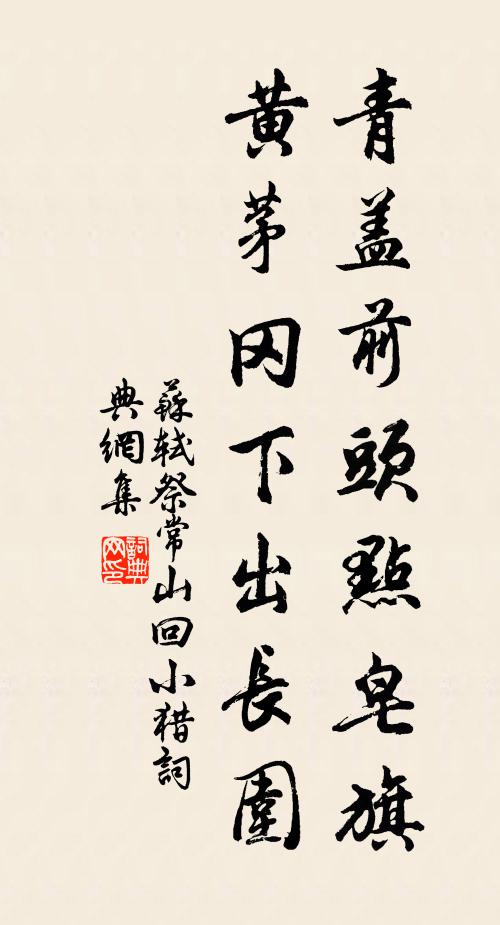 青蓋前頭點皂旗
黃茅冈下出長圍
蘇軾祭常山回小猎詞
典網集
詞典網印